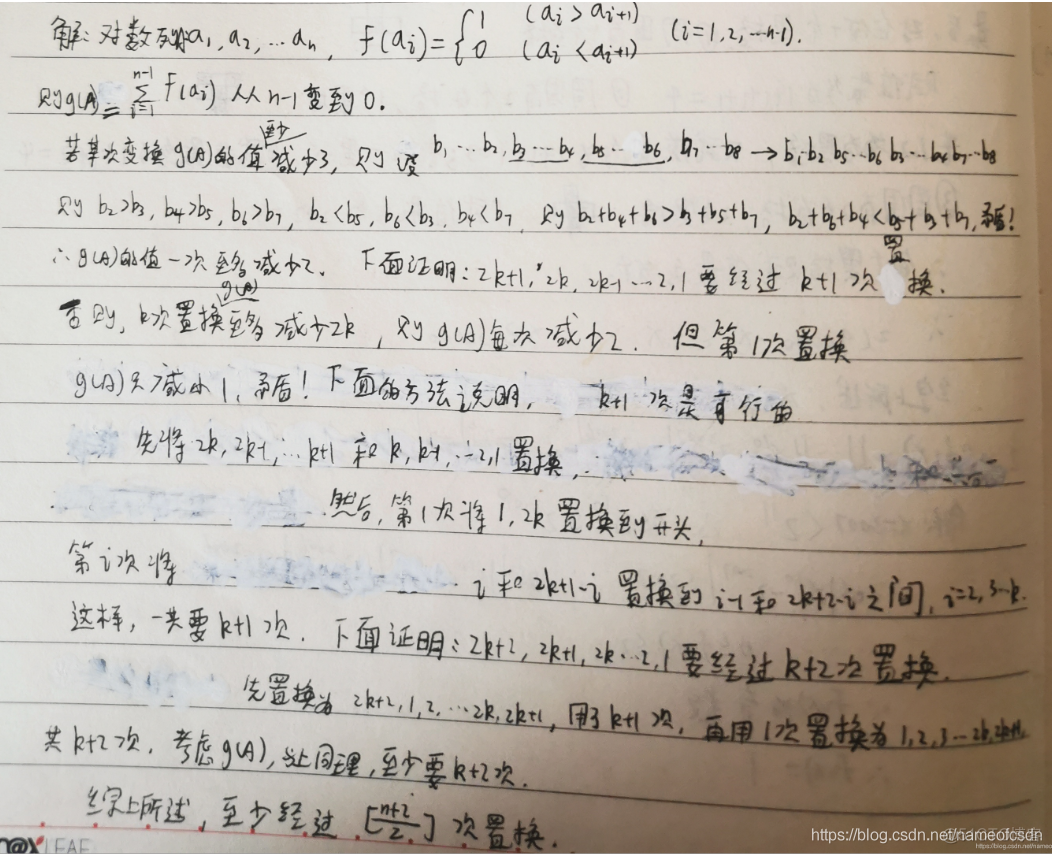 解:对数列a₁, a₂, …aₙ, f(aᵢ)={1 (aᵢ>aᵢ₊₁) 0 (aᵢ<aᵢ₊₁) (i=1,2,…n-1).
则g(A)=∑ᵢ₌₁ⁿ⁻¹ f(aᵢ) 从n-1变到0.
若某次变换g(A)的值至少减少3, 则设 b₁…b₂, b₃…b₄, b₅…b₆, b₇…b₈→b₁b₂ b₅…b₆ b₃…b₄b₇…b₈
则 b₂>b₃, b₄>b₅, b₆>b₇, b₂<b₅, b₆<b₃, b₄<b₇ 则 b₂+b₄+b₆>b₃+b₅+b₇, b₂+b₆+b₄<b₅+b₃+b₇, 矛盾!
∴g(A)的值一次至多减少2. 下面证明:2k+1, 2k, 2k-1…2,1 要经过 k+1次置换.
否则, k次置换g(A)至多减少2k, 则g(A)每次减少2. 但第1次置换
g(A)只减小1, 矛盾!下面的方法说明, k+1次是可行的
先将2k, 2k-1, …k+1 和 k, k-1, …2,1 置换,
然后, 第1次将 1, 2k 置换到开头,
第i次将 i和 2k+1-i 置换到 i-1和 2k+2-i之间, i=2,3…k.
这样, 一共要k+1次. 下面证明:2k+2, 2k+1, 2k…2,1要经过k+2次置换.
先置换为 2k+2,1,2,…2k,2k+1, 用了k+1次, 再用1次置换为1,2,3…2k,2k+1,
共k+2次. 考虑g(A), 与上同理, 至少要k+2次.
综上所述, 至少经过 [(n+2)/2] 次置换.
LEAF
https://blog.csdn.net/nameofcsdn